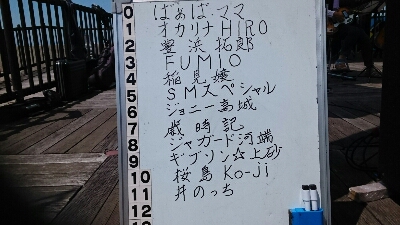 0 ばぁば、ママ
1 オカリナHIRO
2 豊浜拓郎
3 FUMIO
4 稲見嬢
5 SMスペシャル
6 ジョニー高城
7 歳時記
8 ジャガード河端
9 ギブソン☆上砂
10 桜島Ko-ji
11 井のっち
12